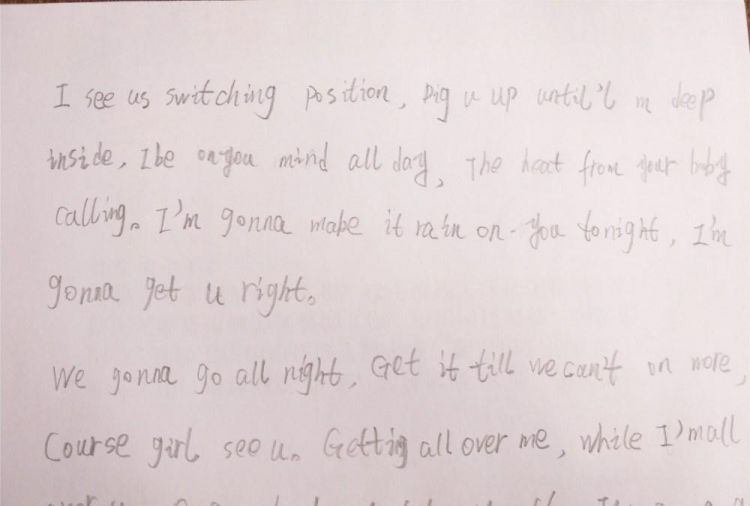 I see us switching position, Dig u up until'l m deep
inside, I be on you mind all day, The heat from your baby
calling. I'm gonna make it rain on you tonight, I'm
gonna get u right.
We gonna go all night, Get it till we can't on more,
Course girl see u. Getting all over me, while I'm all